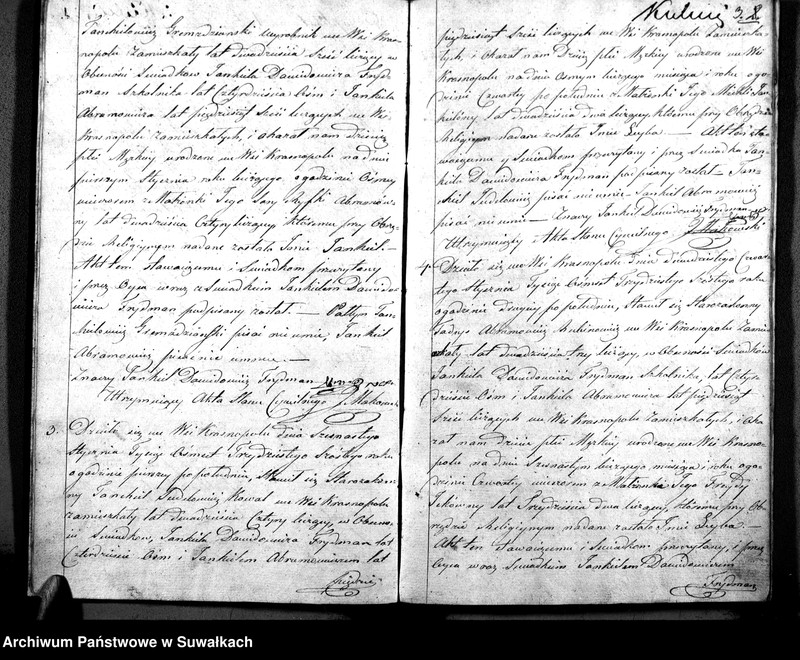 Jankielowicz Gromadzianski wyrobnik we Wsi Kras-
nopolu zamieszkały lat dwadzieścia sześć liczący w
Obecności Swiadkow Jankiela Dawidowicza Fryd-
man Szkolnika lat Czterdzieścia Ośm i Jankiela
Abramowicza lat pięćdziesiąt sześć liczących we Wsi
Krasnopolu zamieszkałych, i okazał nam dziecię
płci Męzkiej urodzone we Wsi Krasnopolu na dniu
pierwszym Stycznia roku bieżącego, o godzinie Osmej
wieczorem z Małżonki Jego Sory Abramów-
ny lat dwadzieścia Cztery liczącej któremu przy Obrzę-
dzie Religijnym nadane zostało Imie Jankiel. —
Akt ten stawającemu i Swiadkom przeczytany
i przez Oyca wraz z Swiadkiem Jankielem Dawido-
wicza Frydman podpisany został. — Jan-
kielowicz Gromadzianski pisać nie umie, Jankiel
Abramowicz pisać nie umie. —
Znaczy Jankiel Dawidowicz Frydman
Utrzymujący Akta Stanu Cywilnego J. Makowski
3. Działo się we Wsi Krasnopolu dnia Szesnastego
Stycznia Tysiąc Ośmset Trzydziestego Szóstego roku
o godzinie pierwszy po południu, Stawił się Starozakon-
ny Jankiel Judelowicz Kowal we Wsi Krasnopolu
zamieszkały lat dwadzieścia Cztery liczący, w Obecno-
ści Swiadkow, Jankiela Dawidowicza Frydman lat
Czterdzieście Ośm i Jankielem Abramowiczem lat
pięćdzie
Kulwij 3. 8
pięćdziesiąt Sześć liczących we Wsi Krasnopolu Zamieszka-
łych i okazał nam Dziecię płci Męzkiej urodzone we Wsi
Krasnopolu na dniu Osmym bieżącego miesiąca i roku o go-
dzinie Czwarty po południu z Małżonki Jego Michli Jan-
kielowy lat dwadzieścia dwa liczącej któremu przy Obrzędzie
Religijnym nadane zostało Imie Leyba — Akt ten sta-
wającemu y Swiadkom przeczytany i przez Swiadka Jan-
kiela Dawidowicza Frydman podpisany został — Jan-
kiel Judelowicz pisać nie umie Jankiel Abramowicz
pisać nie umie. — Znaczy Jankiel Dawidowicz Frydman
Utrzymujący Akta Stanu Cywilnego J. Makowski
4. Działo się we Wsi Krasnopolu Dnia dwudziestego Czwar-
tego Stycznia Tysiąc Ośmset Trzydziestego Szóstego roku
o godzinie drugiey po południu, Stawił się Starozakonny
Abramowicz Rubinowicz we Wsi Krasnopolu Zamie-
szkały lat dwadzieścia trzy liczący, w Obecności Swiadków
Jankiela Dawidowicza Frydman Szkolnika, lat Czter-
dzieście Ośm i Jankiela Abramowicza lat pięćdziesiąt
Sześć liczących we Wsi Krasnopolu Zamieszkałych, i oka-
zał nam Dziecię płci Męzkiej urodzone we Wsi Krasno-
polu na dniu Szesnastym bieżącego miesiąca i roku o go-
dzinie Czwarty wieczorem z Małżonki Jego Freydy
Jckowny lat Trzydzieścia dwa liczącej, któremu przy Ob-
rzędzie Religijnym nadane zostało Imie Leyba. —
Akt ten stawającemu i Swiadkom przeczytany, i przez
Oyca wraz Swiadkiem Jankielem Dawidowiczem
Frydman
Archiwum Państwowe w Suwałkach